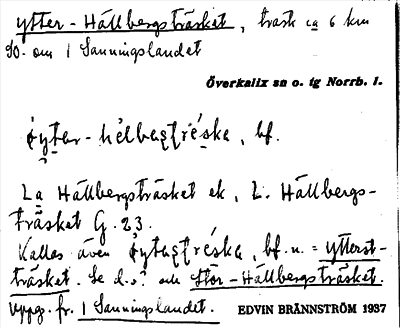 Ytter-Hällbergsträsket, träsk ca 6 km
SO. om 1 Sanningslandet
Överkalix sn o. tg Norrb. l.
bf.
La Hällbergsträsket ek, L. Hällbergs-
träsket G. 23.
Kallas även bf. u. = Ytterst-
träsket. Se d.o.! och Stor-Hällbergsträsket.
Uppg. fr. 1 Sanningslandet. EDVIN BRÄNNSTRÖM 1937